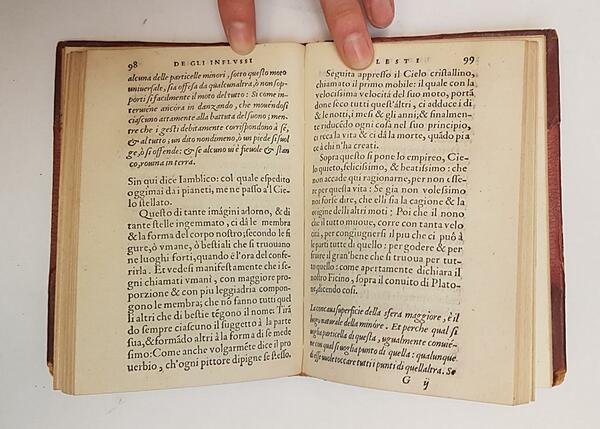 98 DE GLI INFLVSSI
alcuna delle particelle minori, sotto questo moto
uniuersale, sia offesa da qualcun'altra, ò non sop-
porti sì facilmente il moto del tutto: Si come in-
teruiene ancora in danzando, che mouendosi
ciascuno attamente alla battuta del suono; men-
tre che i gesti debitamente corrispondono à sè,
& al tutto; un dato non di meno, ò un piede si suol
ge, ò si offende: & se alcuno ui è fieuole & stan
co, rouina in terra.
Sin qui dice Iamblico: col quale espedito
oggimai da i pianeti, me ne passo a'l Cie
lo stellato.
Questo di tante imagini adorno, & di
tante stelle ingemmato, ci dà le membra
& la forma del corpo nostro; secondo le fi
gure, ò vmane, ò bestiali che si truouano
ne luoghi forti, quando è l'ora del confe-
rirla. Et vedesi manifestamente che i se-
gni chiamati vmani, con maggiore pro-
porzione & con piu leggiadria compon-
gono le membra; che nō fanno tutti quel
li altri che di bestie tēgono il nome: Tirā
do sempre ciascuno il suggetto à la parte
sua, & formādo altri à la forma di se mede
simo: Come anche volgarmēte dice il pro
uerbio, ch'ogni pittore dipigne se stesso.
LESTI 99
Seguita appresso il Cielo cristallino,
chiamato il primo mobile: il quale con la
velocissima velocità del suo moto, portā
done seco tutti quest'altri, ci adduce i dì
& le notti, i mesi & gli anni; & finalmen-
te riducēdo ogni cosa nel suo principio,
ci reca la vita & ci dà la morte, quādo pia
ce à chi n'ha creati.
Sopra questo si pone lo empireo, Cie-
lo quieto, felicissimo, & beatissimo: che
non accade qui ragionarne, per non esse-
re per questa vita: Se già non volessimo
noi forse dire, che elli sia la cagione & la
origine delli altri moti; Poi che il nono
che il tutto muoue, corre con tanta velo
cità, per congiugnersi il piu che ci può à
le parti tutte di quello: per godere & per
fruire il gran' bene che si truoua per tut-
to quello: come apertamente dichiara il
nostro Ficino, sopra il conuito di Plato-
ne, dicendo così.
La concaua superficie della sfera maggiore, è il
luogo naturale della minore. Et perche qual si
uoglia particella di questa, ugualmente conuie-
ne con qual si uoglia punto di quella: qualunque
d'esse uuole toccare tutti i punti di quell'altra. Se
G ij